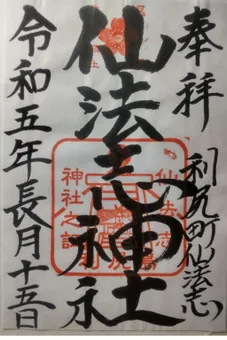 奉拝
利尻町仙法志
仙法志神社
令和五年長月十五日
仙法志
神社之印